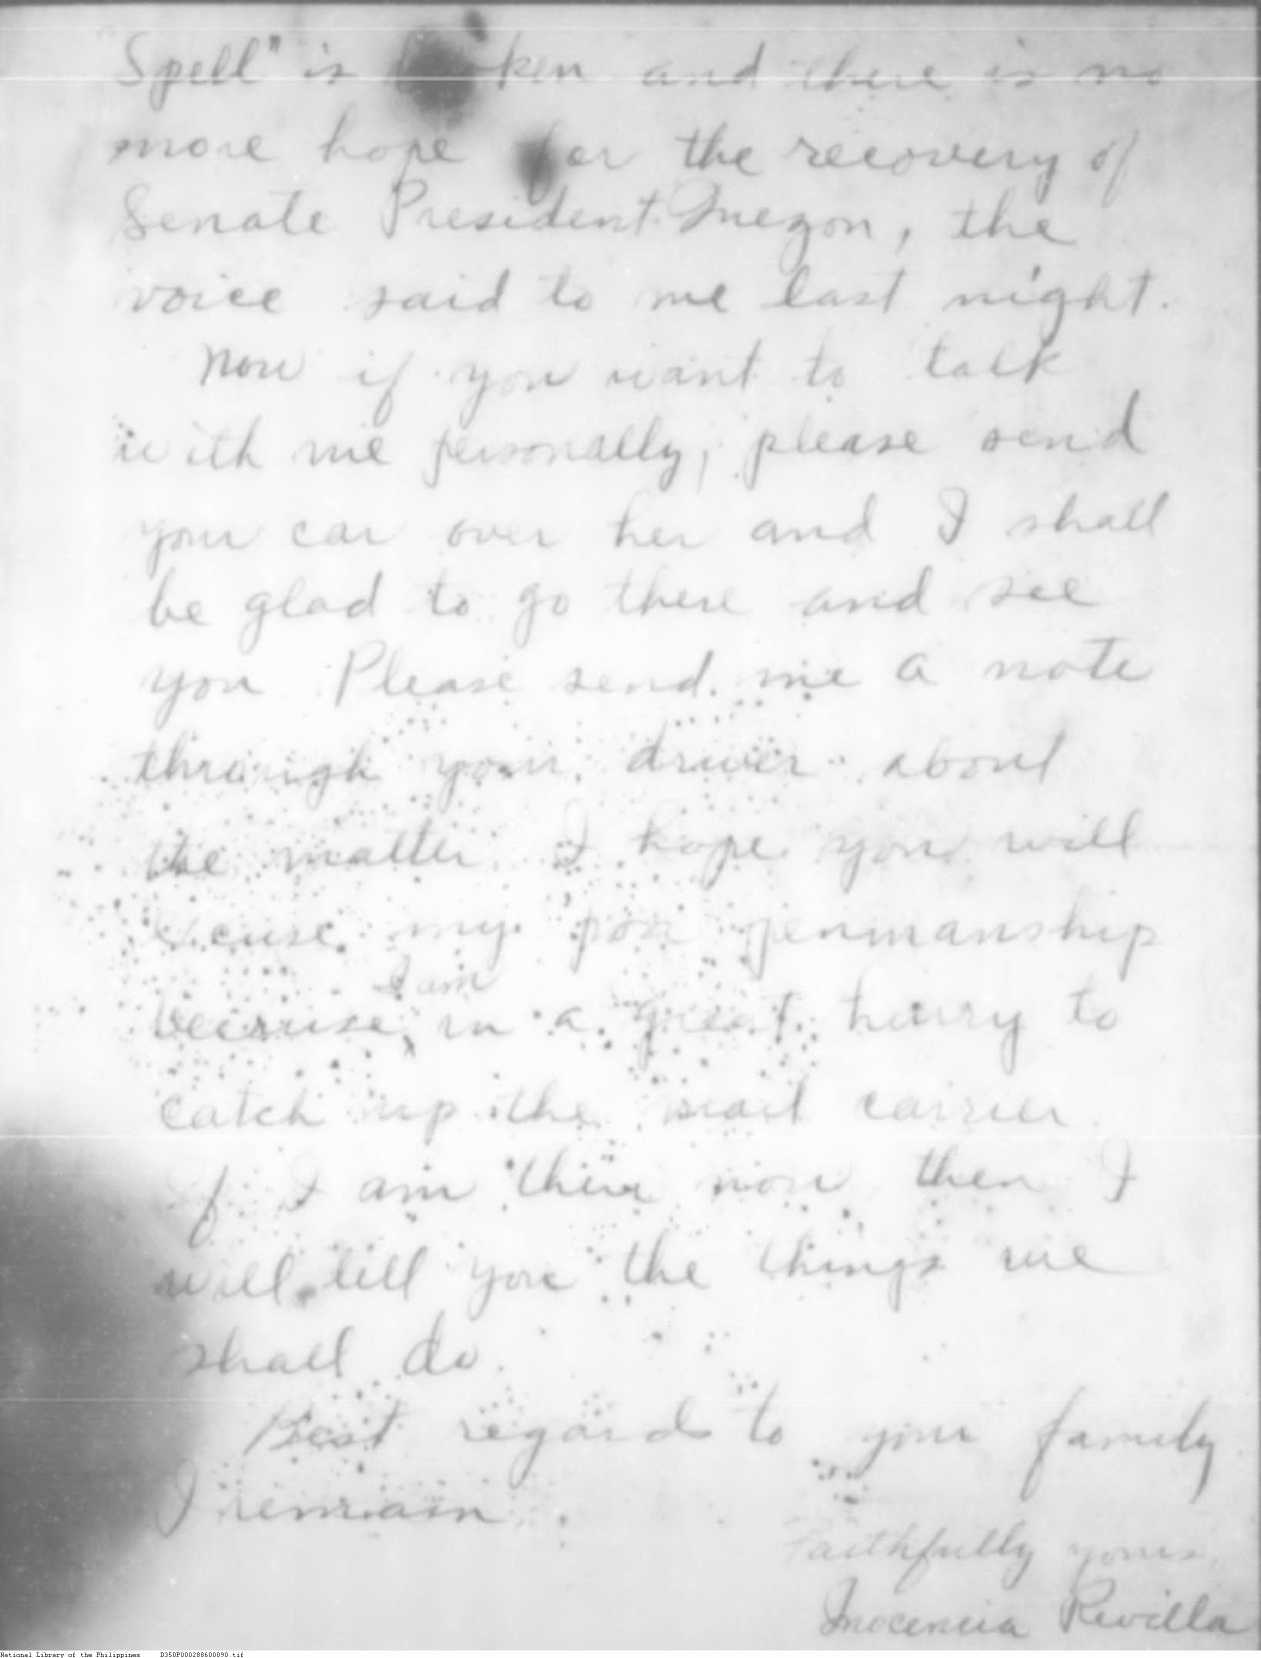 Spell" is broken and there is no
more hope for the recovery of
Senate President Quezon, the
voice said to me last night.
Now if you want to talk
with me personally, please send
your car over her and I shall
be glad to go there and see
you Please send me a note
through your driver about
the matter. I hope you will
excuse my poor penmanship
I am
because, in a great hurry to
catch up the mail carrier.
If I am there now then I
will tell you the things we
shall do.
Best regards to your family
I remain.
Faithfully yours,
Inocencia Revilla
National Library of the Philippines D350P000288600890.tif